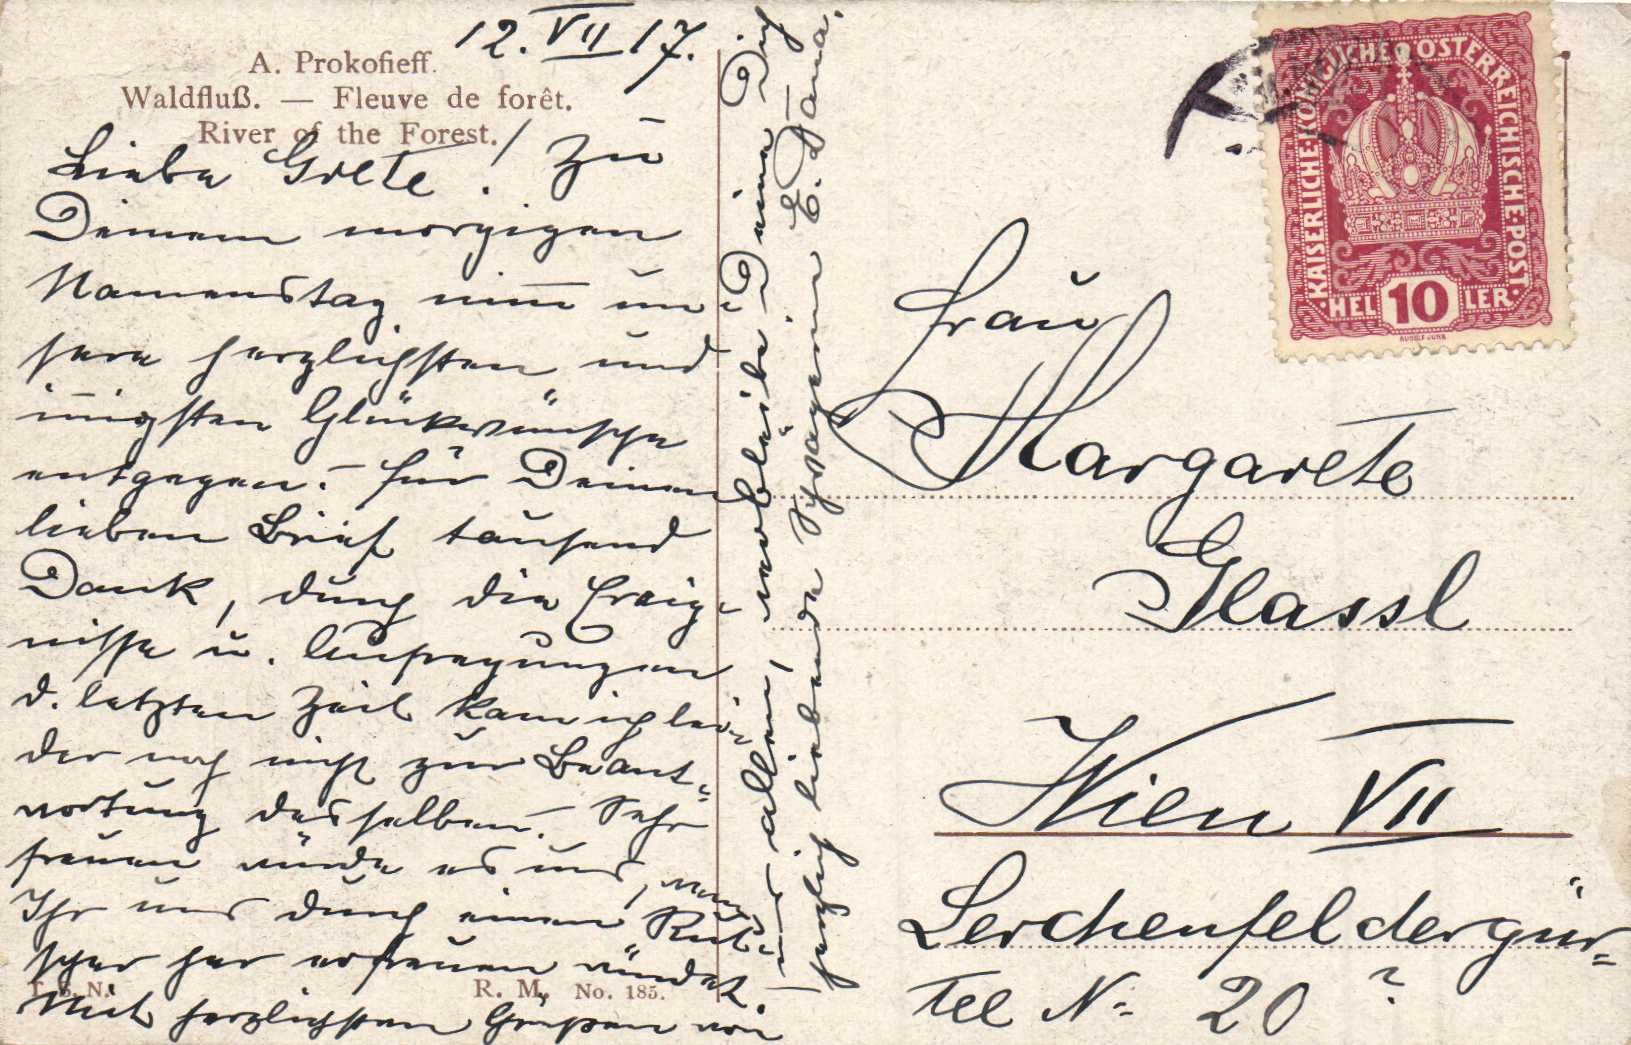 12. VII 17.
A. Prokofieff.
Waldfluß. — Fleuve de forêt.
River of the Forest.
Liebe Grete! Zu
Deinem morgigen
Namenstag nimm un-
sere herzlichsten und
innigsten Glückwünsche
entgegen. – Für Deinen
lieben Brief tausend
Dank, durch die Ereig-
nisse u. Aufregungen
d. letzten Zeit kam ich lei-
der noch nicht zur Beant-
wortung desselben. – Sehr
freuen würde es uns, wenn
Ihr uns durch einen Rut-
scher her erfreuen würdet.
Mit herzlichsten Grüßen von
uns allen, verbleibe Deine Dich
herzlich liebende Schwägerin E. Dana.
T. S. N.
R. M. No. 185.
KAISERLICHE KÖNIGLICHE ÖSTERREICHISCHE POST
HELLER 10
RUDOLF JUNK
Frau
Margarete
Glassl
Wien VII
Lerchenfeldergür-
tel No 20 ?